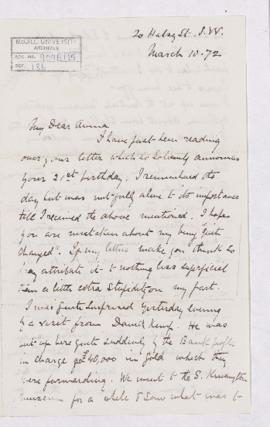 McGILL UNIVERSITY
ARCHIVES
ACC. NO.
REF.
20 Halsey St. S.W.
March 10 - 72
My Dear Anna
I have just been reading
over your letter which so solemnly announces
your 21st birthday. I remembered the
day but was not fully alive to its importance
till I received the above mentioned. I hope
you are mistaken about my being "quite
changed". If my letters make you think so
pray attribute it to nothing less superficial
than a little extra stupidity on my part.
I was quite surprised yesterday evening
by a visit from David Kemp. He was
sent up here quite suddenly by the Bank people
in charge of £40,000 in Gold which they
were forwarding. We went to the S. Kensington
Museum for a while & saw what was to